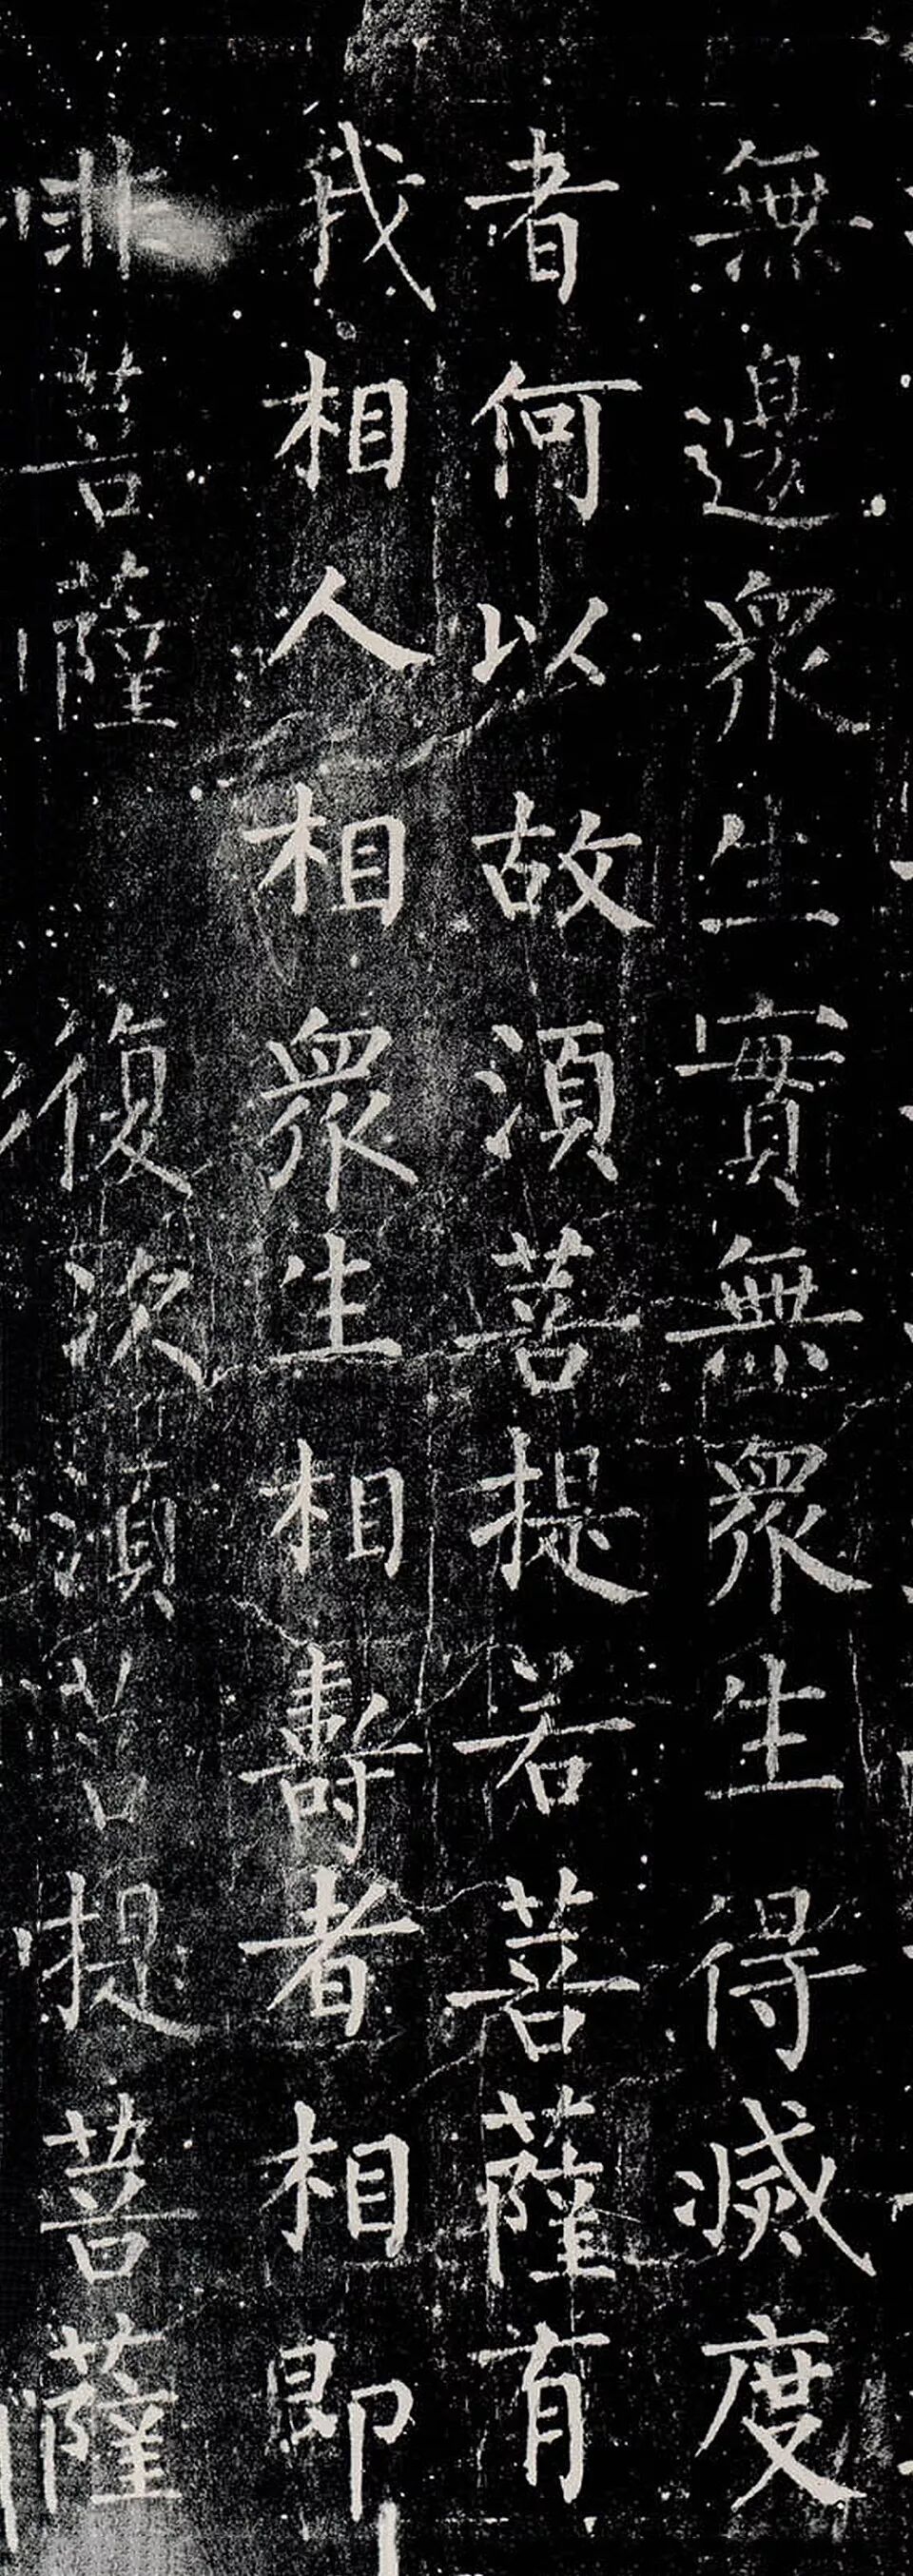 無邊衆生實無衆生得滅度
者何以故須菩提若菩薩有
我相人相衆生相壽者相即
非菩薩 復次須菩提菩薩